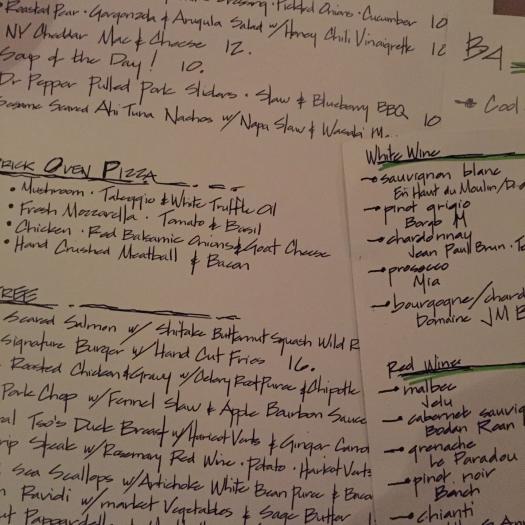 Roasted Pear · Gorgonzola & Arugula Salad w/ Honey Chili Vinaigrette 12
Dressing · Pickled Onions · Cucumber 10
NY Cheddar Mac & Cheese 12.
Soup of the Day! 10.
Dr Pepper Pulled Pork Sliders · Slaw & Blueberry BBQ 10
Sesame Seared Ahi Tuna Nachos w/ Napa Slaw & Wasabi M...
BRICK OVEN PIZZA
• Mushroom · Taleggio & White Truffle Oil
• Fresh Mozzarella · Tomato & Basil
• Chicken · Red Balsamic Onions & Goat Cheese
• Hand Crushed Meatball & Bacon
TREE
Seared Salmon w/ Shitake Butternut Squash Wild R
Signature Burger w/ Hand Cut Fries 16.
Roasted Chicken & Gravy w/ Celery Root Puree & Chipotle
Pork Chop w/ Fennel Slaw & Apple Bourbon Sauce
ral Tso's Duck Breast w/ Haricot Verts & Ginger Carrot
rip Steak w/ Rosemary Red Wine · Potato · Haricot Verts
Sea Scallops w/ Artichoke White Bean Puree & Baco
Ravioli w/ market Vegetables & Sage Butter
Pappardelle
BA
Cod
White Wine
sauvignon blanc
En Haut du Moulin/
pinot grigio
Borgo M
chardonnay
Jean Paul Brun · T
prosecco
Mia
bourgogne/chard
Domaine JM B
Red Wine
malbec
Jelu
cabernet sauvig
Bodan Roan
grenache
Le Paradou
pinot noir
Banch
chianti